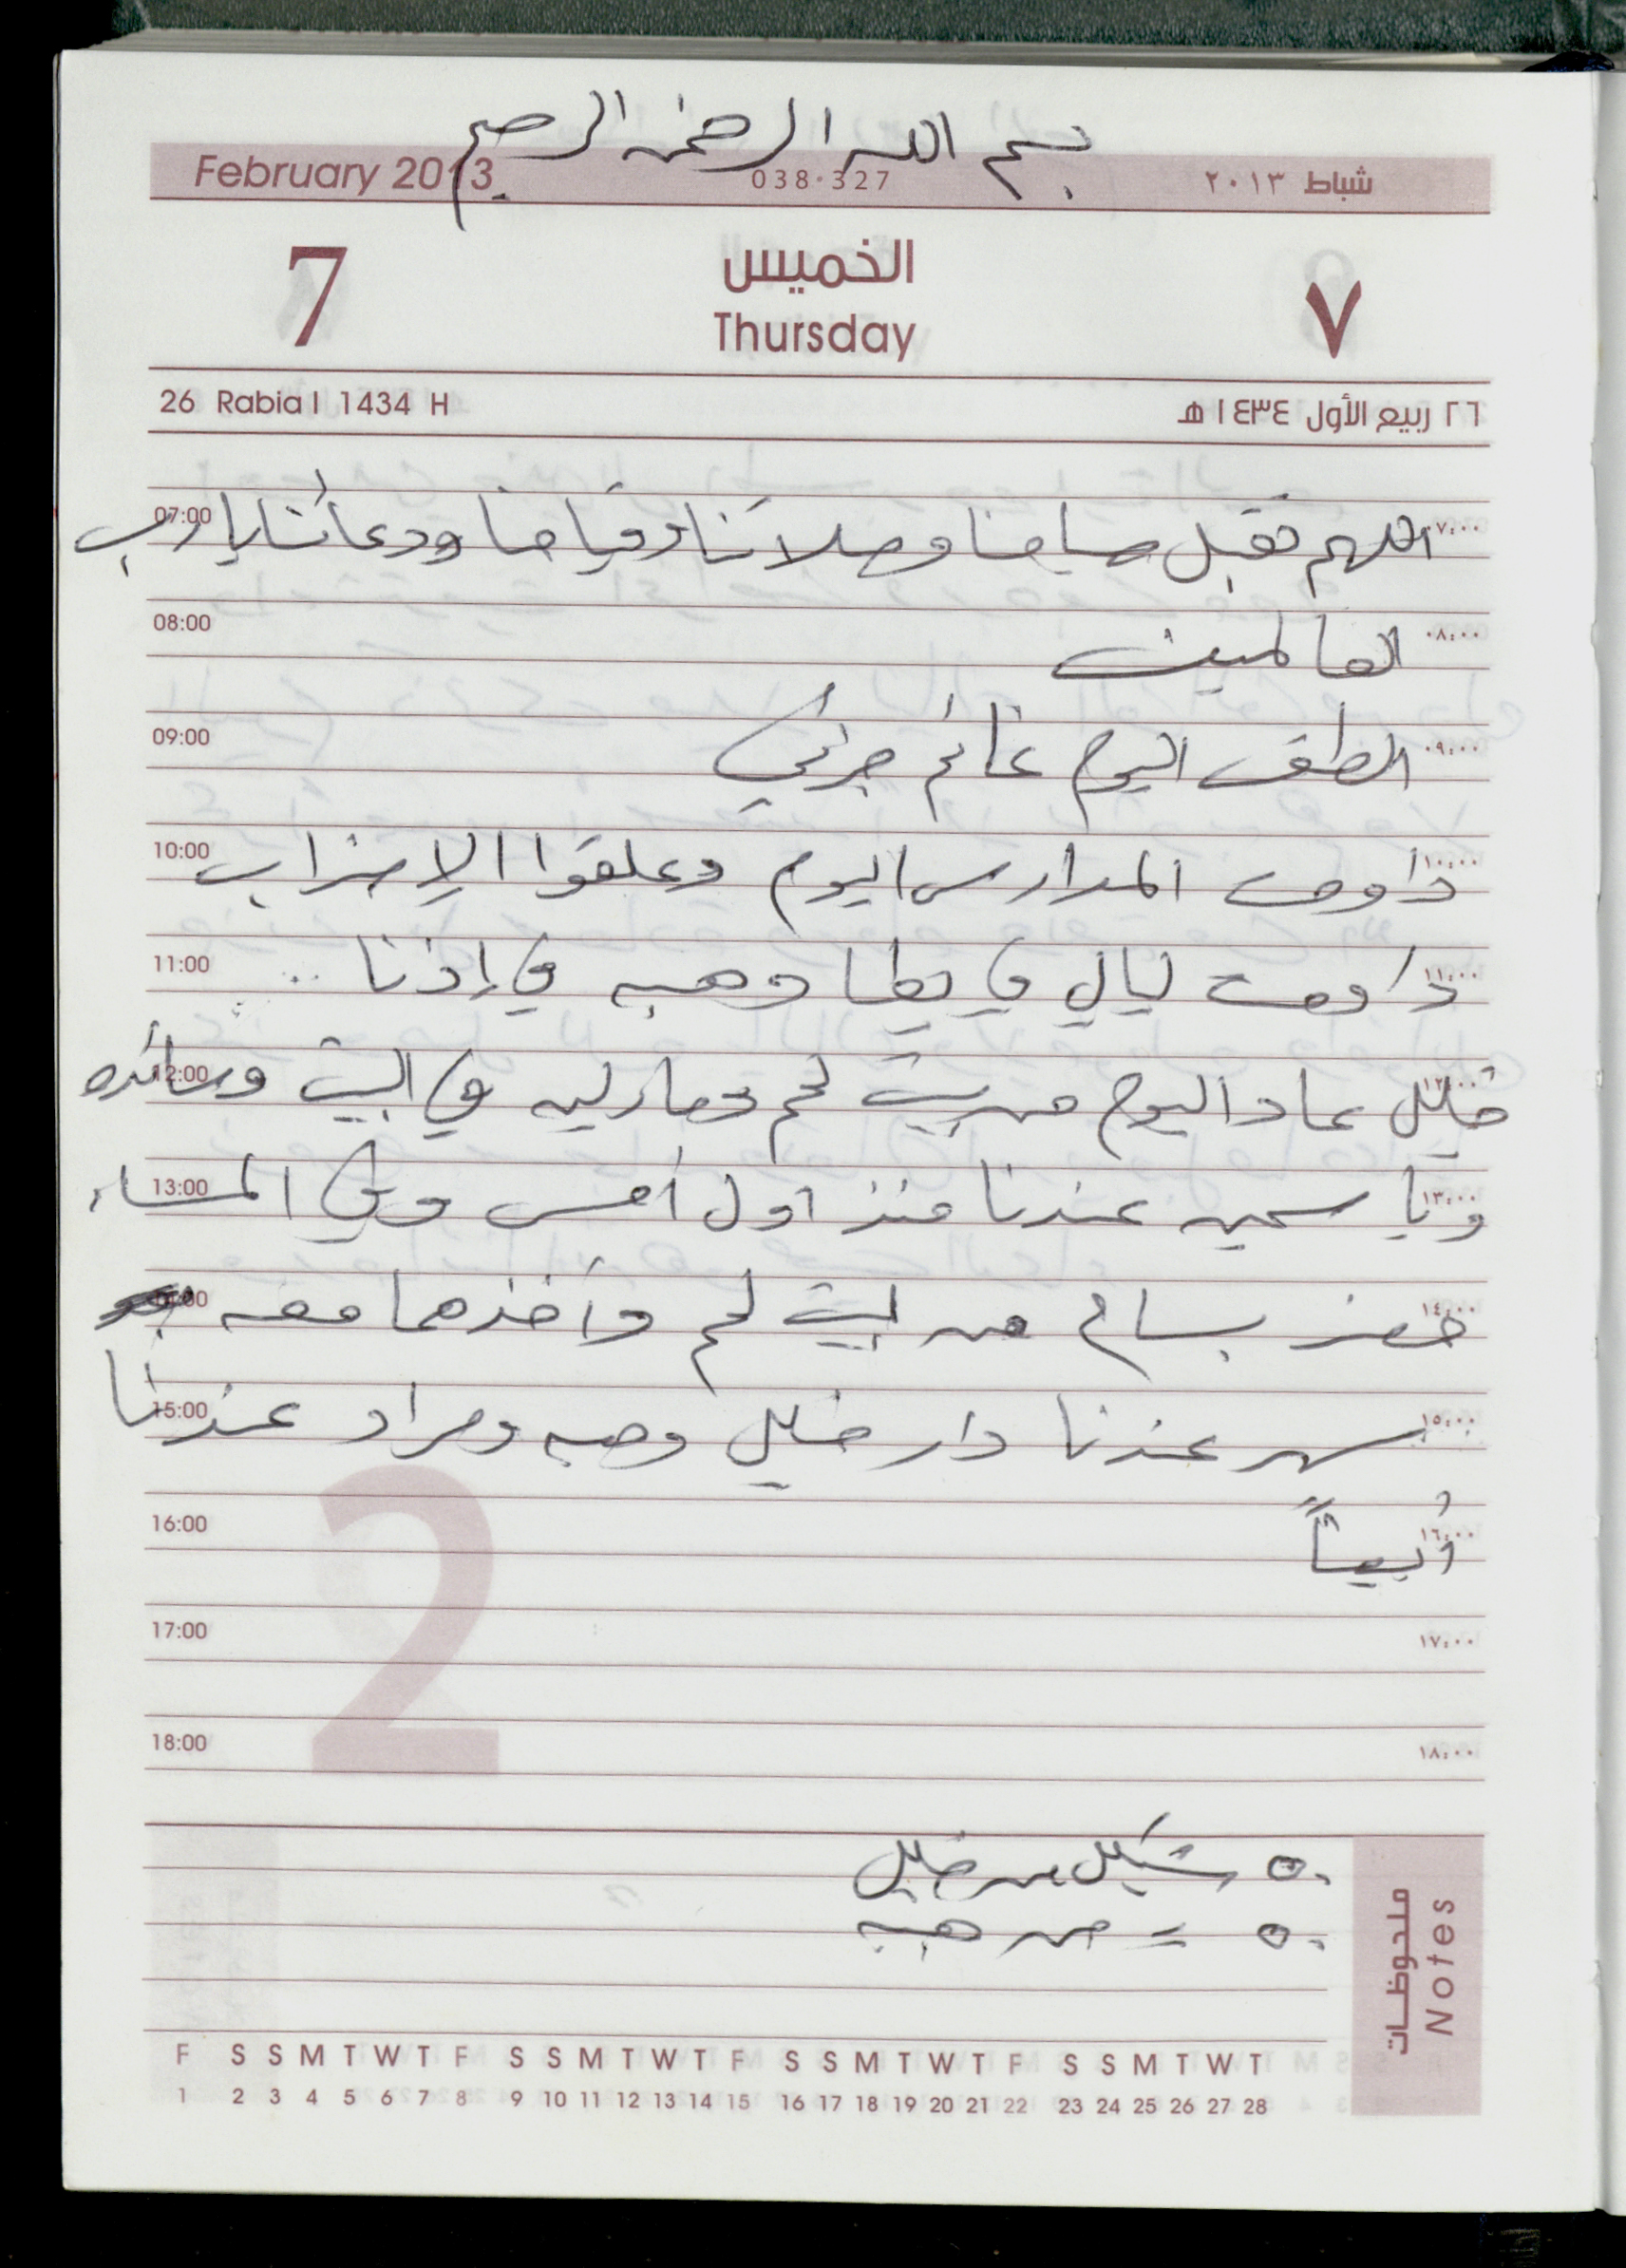 بسم الله الرحمن الرحيم
February 2013 038·327 شباط ٢٠١٣
7 الخميس ٧
Thursday
26 Rabia I 1434 H ٢٦ ربيع الأول ١٤٣٤ هـ
07:00 اللهم تقبل صيامنا وصلاتنا وقيامنا ودعائنا يا رب ٠٧:٠٠
08:00 العالمين ٠٨:٠٠
09:00 الطقس اليوم غائم جزئي ٠٩:٠٠
10:00 داومت المدارس اليوم وعلقوا الإضراب ١٠:٠٠
11:00 داومت ليالي في يطا وهبه في إذنا .. ١١:٠٠
12:00 خليل عاد اليوم من بيت لحم في البيت ١٢:٠٠
13:00 وياسمين عندنا منذ اول أمس وفي المساء ١٣:٠٠
14:00 حضر بسام من بيت لحم وأخذهما معه ١٤:٠٠
15:00 سهر عندنا دار خليل وهبه ومراد عندنا ١٥:٠٠
16:00 ١٦:٠٠
17:00 ١٧:٠٠
18:00 ١٨:٠٠
2
٥٠ شيكل من خليل
٥٠ = من هبه
ملحوظات
Notes
F S S M T W T F S S M T W T F S S M T W T F S S M T W T
1 2 3 4 5 6 7 8 9 10 11 12 13 14 15 16 17 18 19 20 21 22 23 24 25 26 27 28